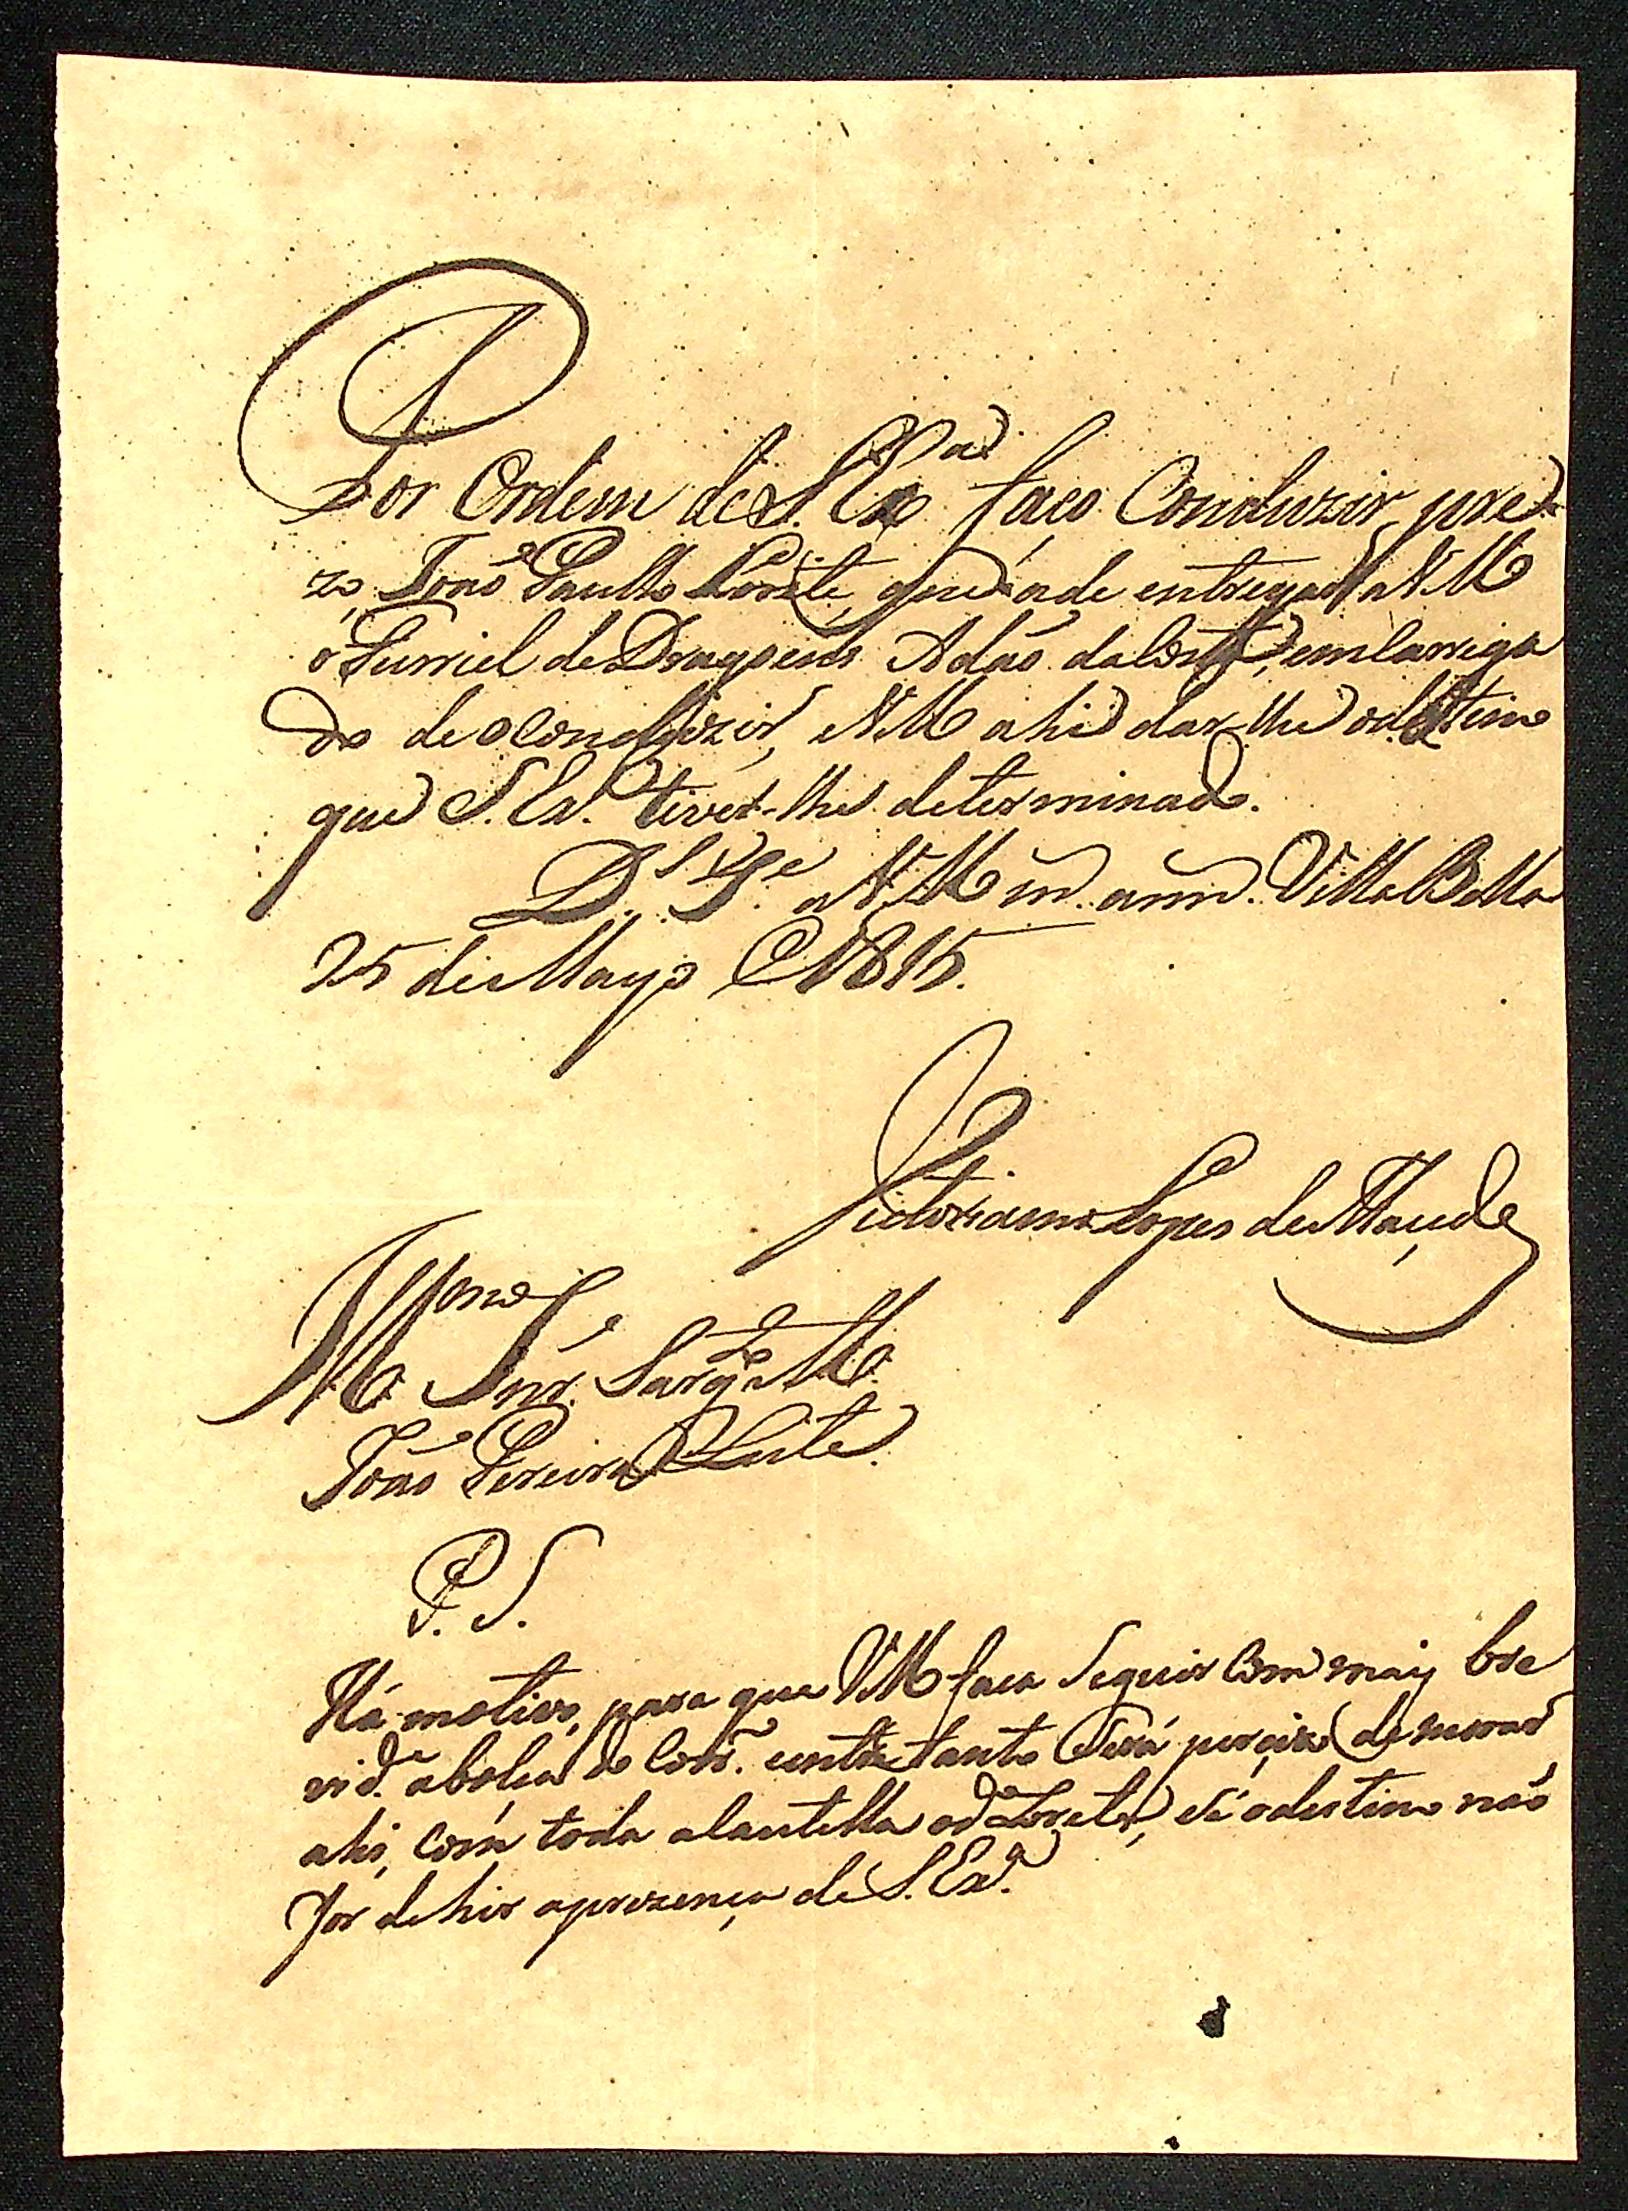 Por Ordem de S. Exª faço Conduzir pre-
zo, João Paullo Lorete, que ade entregar a VM
o Furriel de Dragoens Adão da Costa, emcarriga
do de o conduzir, e VM ahi dar-lhe o destino
que S. Exª. tiver-lhe determinado.
Ds. Ge. a VM m. ann. Villa Bella
25 de Mayo de 1815.
Victoriano Lopes de Maçedo
Illmo Snr. Sargto Mor
João Pereira Leite.
P. S.
Há motivo, para que VM faça Seguir Com mais bre
vide. a bolça do Corr. entretanto Será percizo demorar
ahi, com toda a Cautella o do Lorete, Sé o destino não
for de hir a prezença de S. Exª.